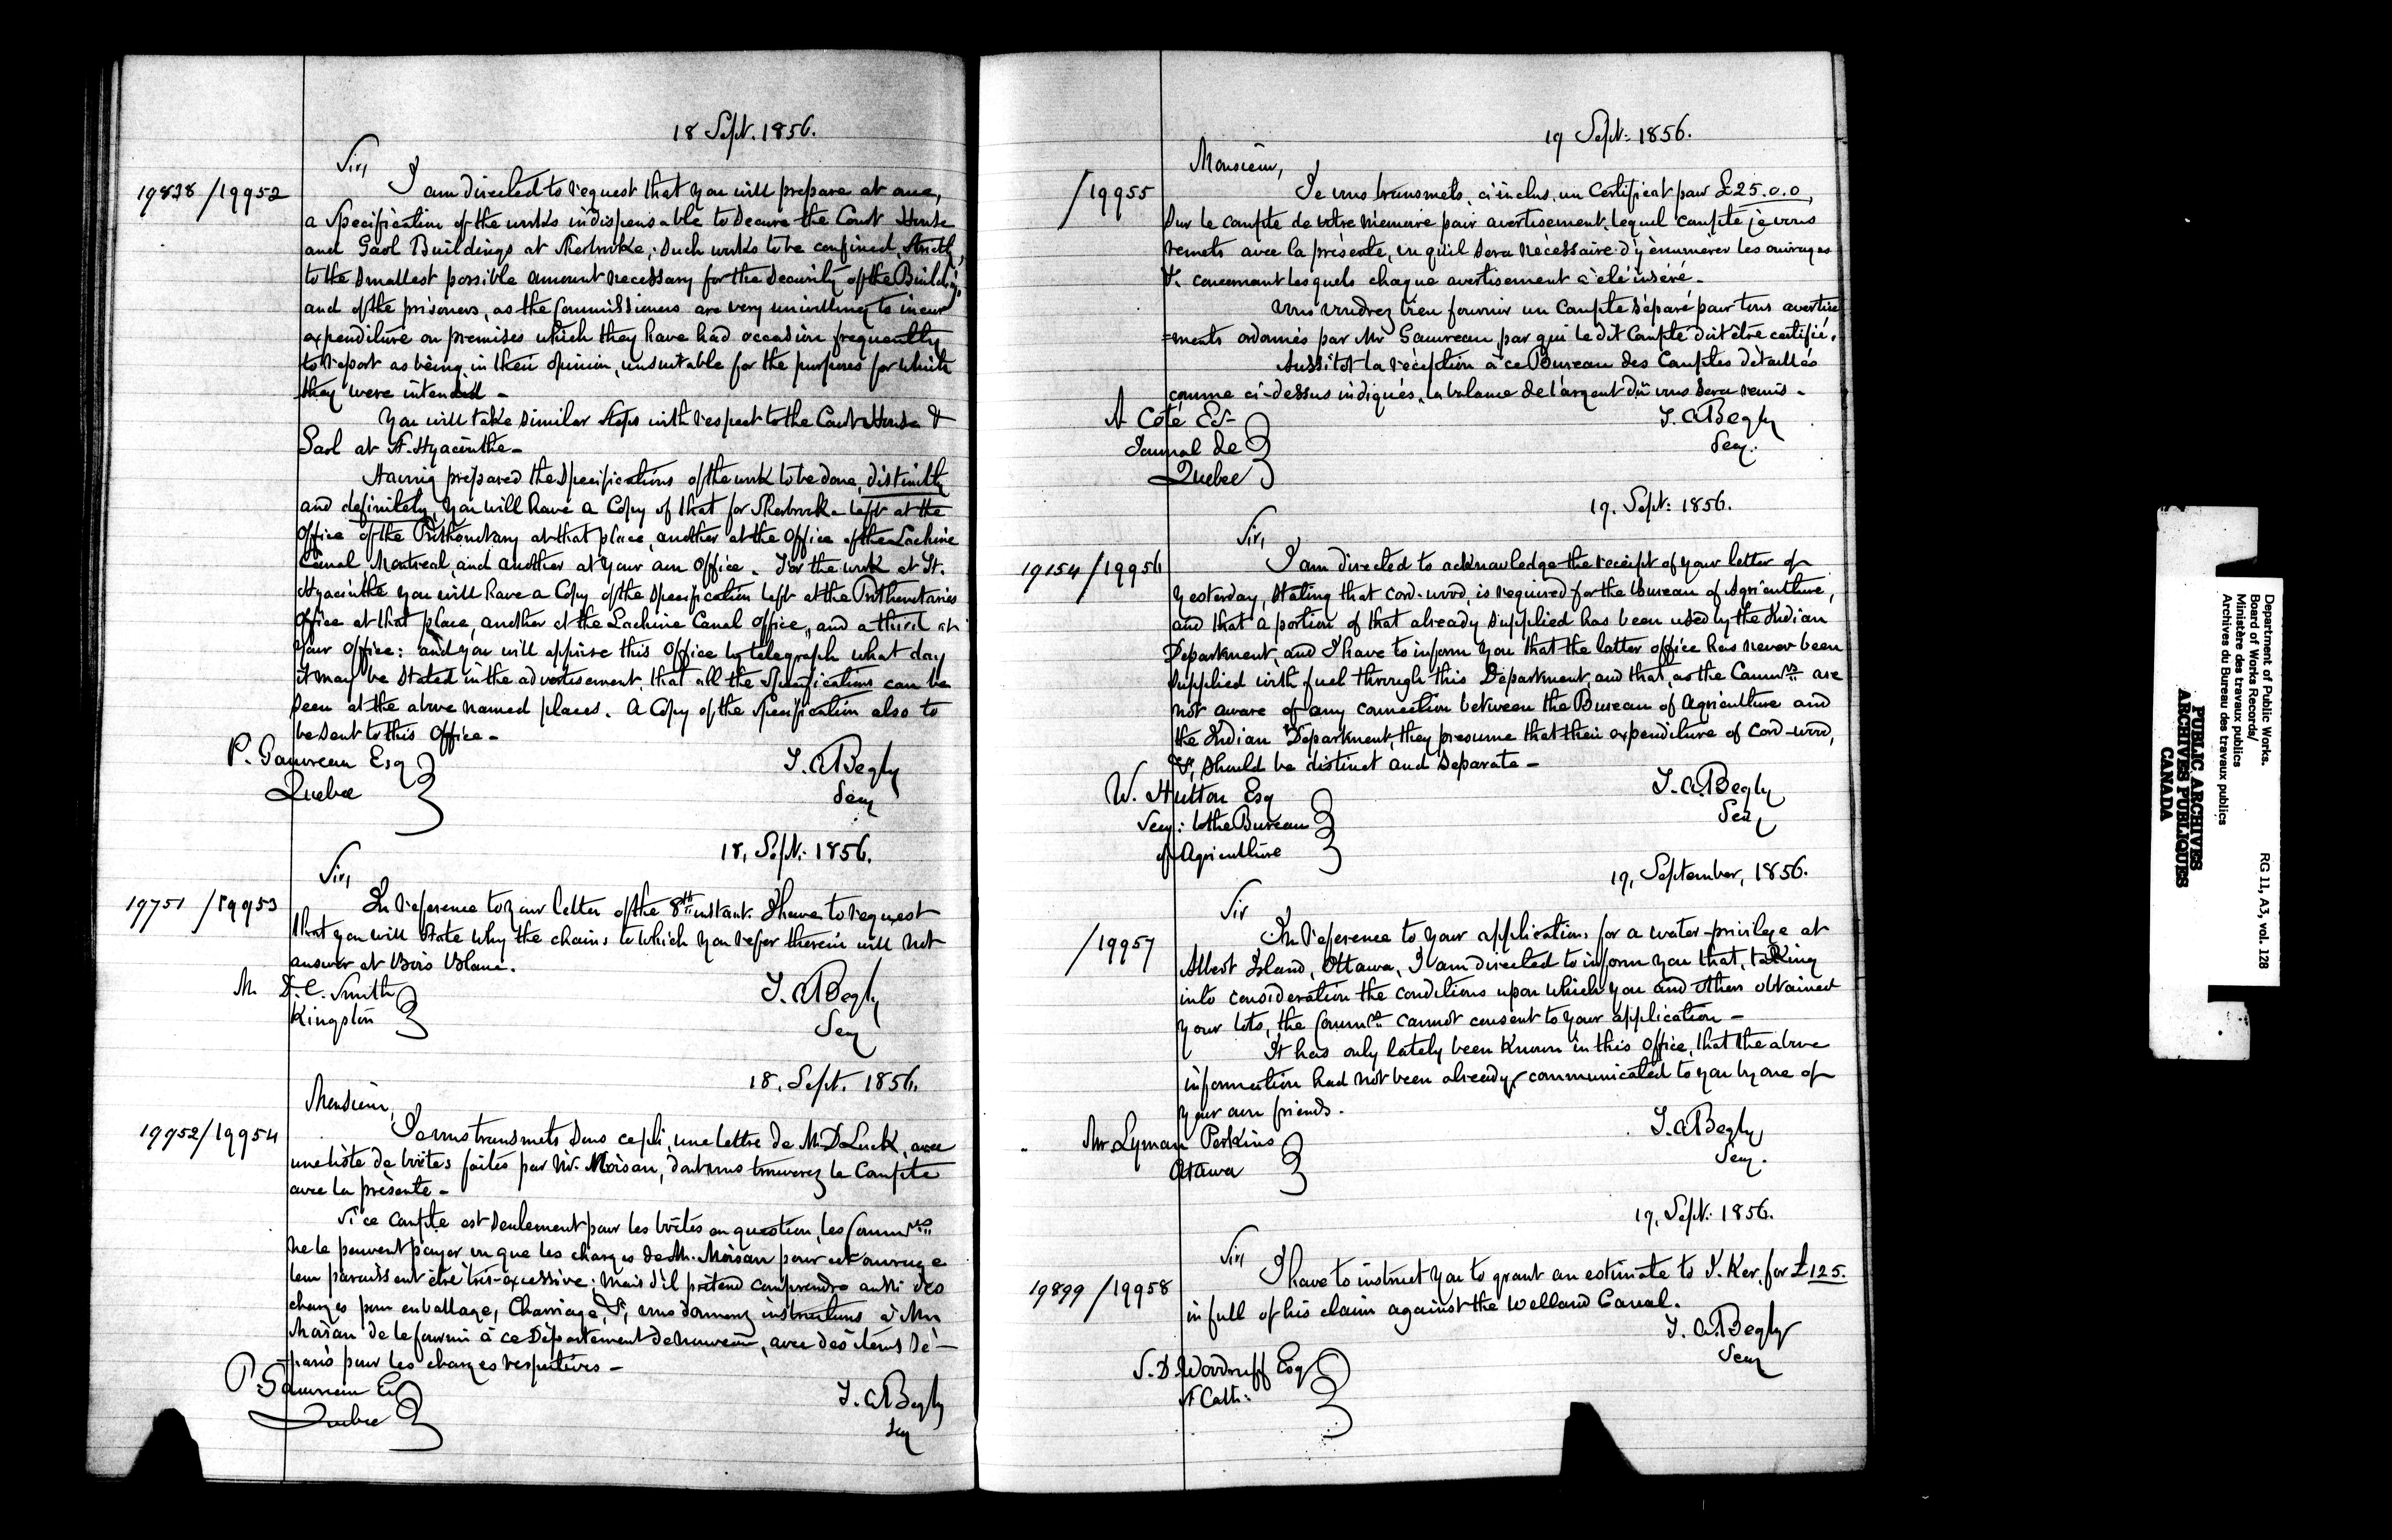 18 Sept. 1856.
Sir,
19838 / 19952
I am directed to request that you will prepare at once,
a Specification of the works indispensable to secure the Court House
and Gaol Buildings at Sherbrooke; such works to be confined, strictly,
to the smallest possible amount necessary for the security of the Buildgs,
and of the prisoners, as the Commissioners are very unwilling to incur
expenditure on premises which they have had occasion frequently
to report as being, in their opinion, unsuitable for the purposes for which
they were intended -
You will take similar steps with respect to the Court House &
Gaol at St. Hyacinthe -
Having prepared the specifications of the work to be done, distinctly
and definitely, you will have a Copy of that for Sherbrooke left at the
Office of the Prothonotary at that place, another at the Office of the Lachine
Canal, Montreal, and another at your own Office. For the work at St.
Hyacinthe you will have a Copy of the specification left at the Prothonotaries
Office at that place, another at the Lachine Canal Office, and a third at
your Office: and you will apprise this Office by telegraph what day
it may be stated in the advertisement, that all the specifications can be
seen at the above named places. A Copy of the specification also to
be sent to this Office -
P. Gauvreau Esq
Quebec
T. A. Begly
Secy
18, Sept. 1856.
Sir,
19751 / 19953
In reference to your letter of the 8th instant. I have to request
that you will state why the chains to which you refer therein will not
answer at Bois Blanc.
M D. C. Smith
Kingston
T. A. Begly
Secy
18, Sept. 1856.
Monsieur,
19952 / 19954
Je vous transmets sous ce pli, une lettre de M. D. Luck, avec
une liste de boîtes faites par Mr. Moisan, dont vous trouverez le Compte
avec la présente -
Si ce compte est seulement pour les boîtes en question, les Commrs
ne le peuvent payer vu que les charges de M. Moisan pour cet ouvrage
leur paraissent être très-excessive: mais s'il prétend comprendre aussi des
charges pour emballage, Charriage, &c, vous donnerez instructions à Mr
Moisan de le fournir à ce Département de nouveau, avec des items sé-
parés pour les charges respectives -
P. Gauvreau Esq
Quebec
T. A. Begly
Secy
19 Sept: 1856.
Monsieur,
/ 19955
Je vous transmets, ci inclus, un Certificat pour £25.0.0,
sur le compte de votre mémoire pour avertissement, lequel compte je vous
remets avec la présente, vu qu'il sera nécessaire d'y énumerer les ouvrages
&c. concernant lesquels chaque avertissement a été inséré -
Vous voudrez bien fournir un Compte séparé pour tous avertisse
=ments ordonnés par Mr Gauvreau par qui le dit Compte doit être certifié.
Aussitot la réception à ce Bureau des Comptes détaillés
comme ci-dessus indiqués, la balance de l'argent dû vous sera remis -
A Coté Esr
Journal de
Quebec
T. A. Begly
Secy.
19. Sept: 1856.
Sir,
19154 / 19956
I am directed to acknowledge the receipt of your letter of
yesterday, stating that cord-wood, is required for the Bureau of Agriculture,
and that a portion of that already supplied has been used by the Indian
Department, and I have to inform you that the latter office has never been
supplied with fuel through this Department, and that, as the Commrs are
not aware of any connection between the Bureau of Agriculture and
the Indian Department, they presume that their expenditure of Cord-wood,
&c, should be distinct and separate -
W. Hutton Esq
Secy: to the Bureau
of Agriculture
T. A. Begly
Secy
19, September, 1856.
Sir
/ 19957
In reference to your application, for a water-privilege at
Albert Island, Ottawa, I am directed to inform you that, taking
into consideration the conditions upon which you and others obtained
your lots, the Commrs cannot consent to your application -
It has only lately been known in this Office, that the above
information had not been already communicated to you by one of
your own friends.
Mr Lyman Perkins
Ottawa
T. A. Begly
Secy.
19, Sept: 1856.
Sir,
19899 / 19958
I have to instruct you to grant an estimate to J. Ker, for £125.
in full of his claim against the Welland Canal.
S. D. Woodruff Esq
St Cath:
T. A. Begly
Secy
Department of Public Works.
Board of Works Records/
Ministère des travaux publics
Archives du Bureau des travaux publics
RG 11, A3, vol. 128
PUBLIC ARCHIVES
ARCHIVES PUBLIQUES
CANADA